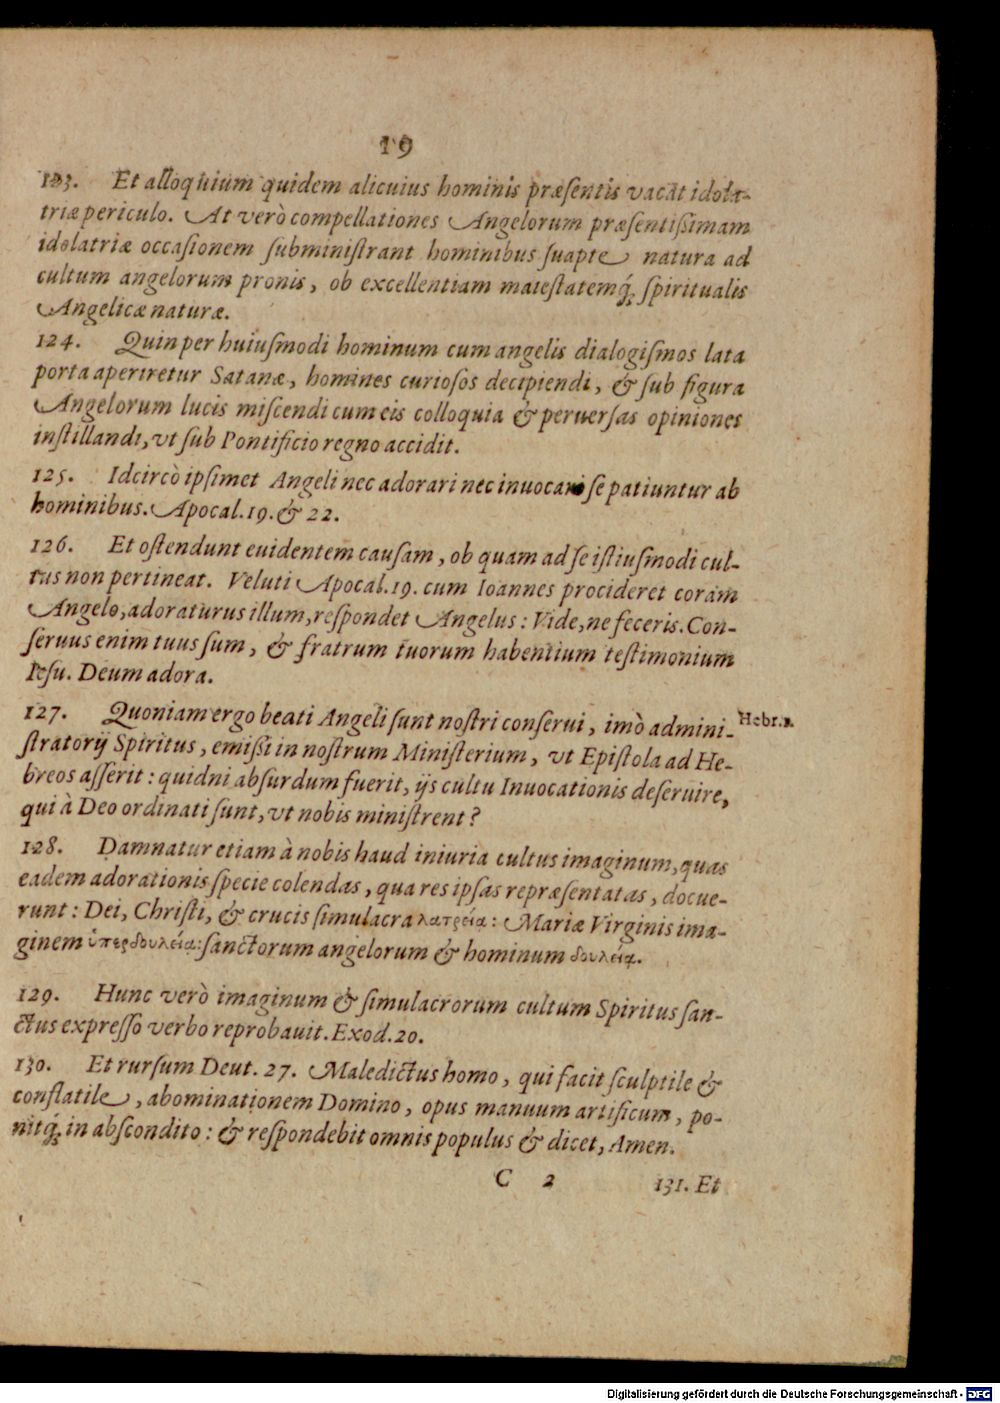 19
123. Et alloquium quidem alicuius hominis præſentis vacat idola-
triæ periculo. At verò compellationes Angelorum præſentißimam
idolatriæ occaſionem ſubminiſtrant hominibus ſuapte natura ad
cultum angelorum pronis, ob excellentiam maieſtatemq́; ſpiritualis
Angelicæ naturæ.
124. Quin per huiuſmodi hominum cum angelis dialogiſmos lata
porta aperiretur Satanæ, homines curioſos decipiendi, & ſub figura
Angelorum lucis miſcendi cum eis colloquia & peruerſas opiniones
inſtillandi, vt ſub Pontificio regno accidit.
125. Idcircò ipſimet Angeli nec adorari nec inuocari ſe patiuntur ab
hominibus. Apocal. 19. & 22.
126. Et oſtendunt euidentem cauſam, ob quam ad ſe iſtiuſmodi cul-
tus non pertineat. Veluti Apocal. 19. cum Ioannes procideret coram
Angelo, adoraturus illum, reſpondet Angelus: Vide, ne feceris. Con-
ſeruus enim tuus ſum, & fratrum tuorum habentium teſtimonium
Ieſu. Deum adora.
127. Quoniam ergo beati Angeli ſunt noſtri conſerui, imò admini- Hebr. 1.
ſtratorij Spiritus, emißi in noſtrum Miniſterium, vt Epiſtola ad He-
breos aſſerit: quidni abſurdum fuerit, ijs cultu Inuocationis deſeruire,
qui à Deo ordinati ſunt, vt nobis miniſtrent?
128. Damnatur etiam à nobis haud iniuria cultus imaginum, quas
eadem adorationis ſpecie colendas, qua res ipſas repræſentatas, docue-
runt: Dei, Chriſti, & crucis ſimulacra λατρεία: Mariæ Virginis ima-
ginem ὑπερδουλεία: ſanctorum angelorum & hominum δουλεία.
129. Hunc verò imaginum & ſimulacrorum cultum Spiritus ſan-
ctus expreſſo verbo reprobauit. Exod. 20.
130. Et rurſum Deut. 27. Maledictus homo, qui facit ſculptile &
conflatile, abominationem Domino, opus manuum artificum, po-
nitq́; in abſcondito: & reſpondebit omnis populus & dicet, Amen.
C 2 131. Et
Digitalisierung gefördert durch die Deutsche Forschungsgemeinschaft - DFG